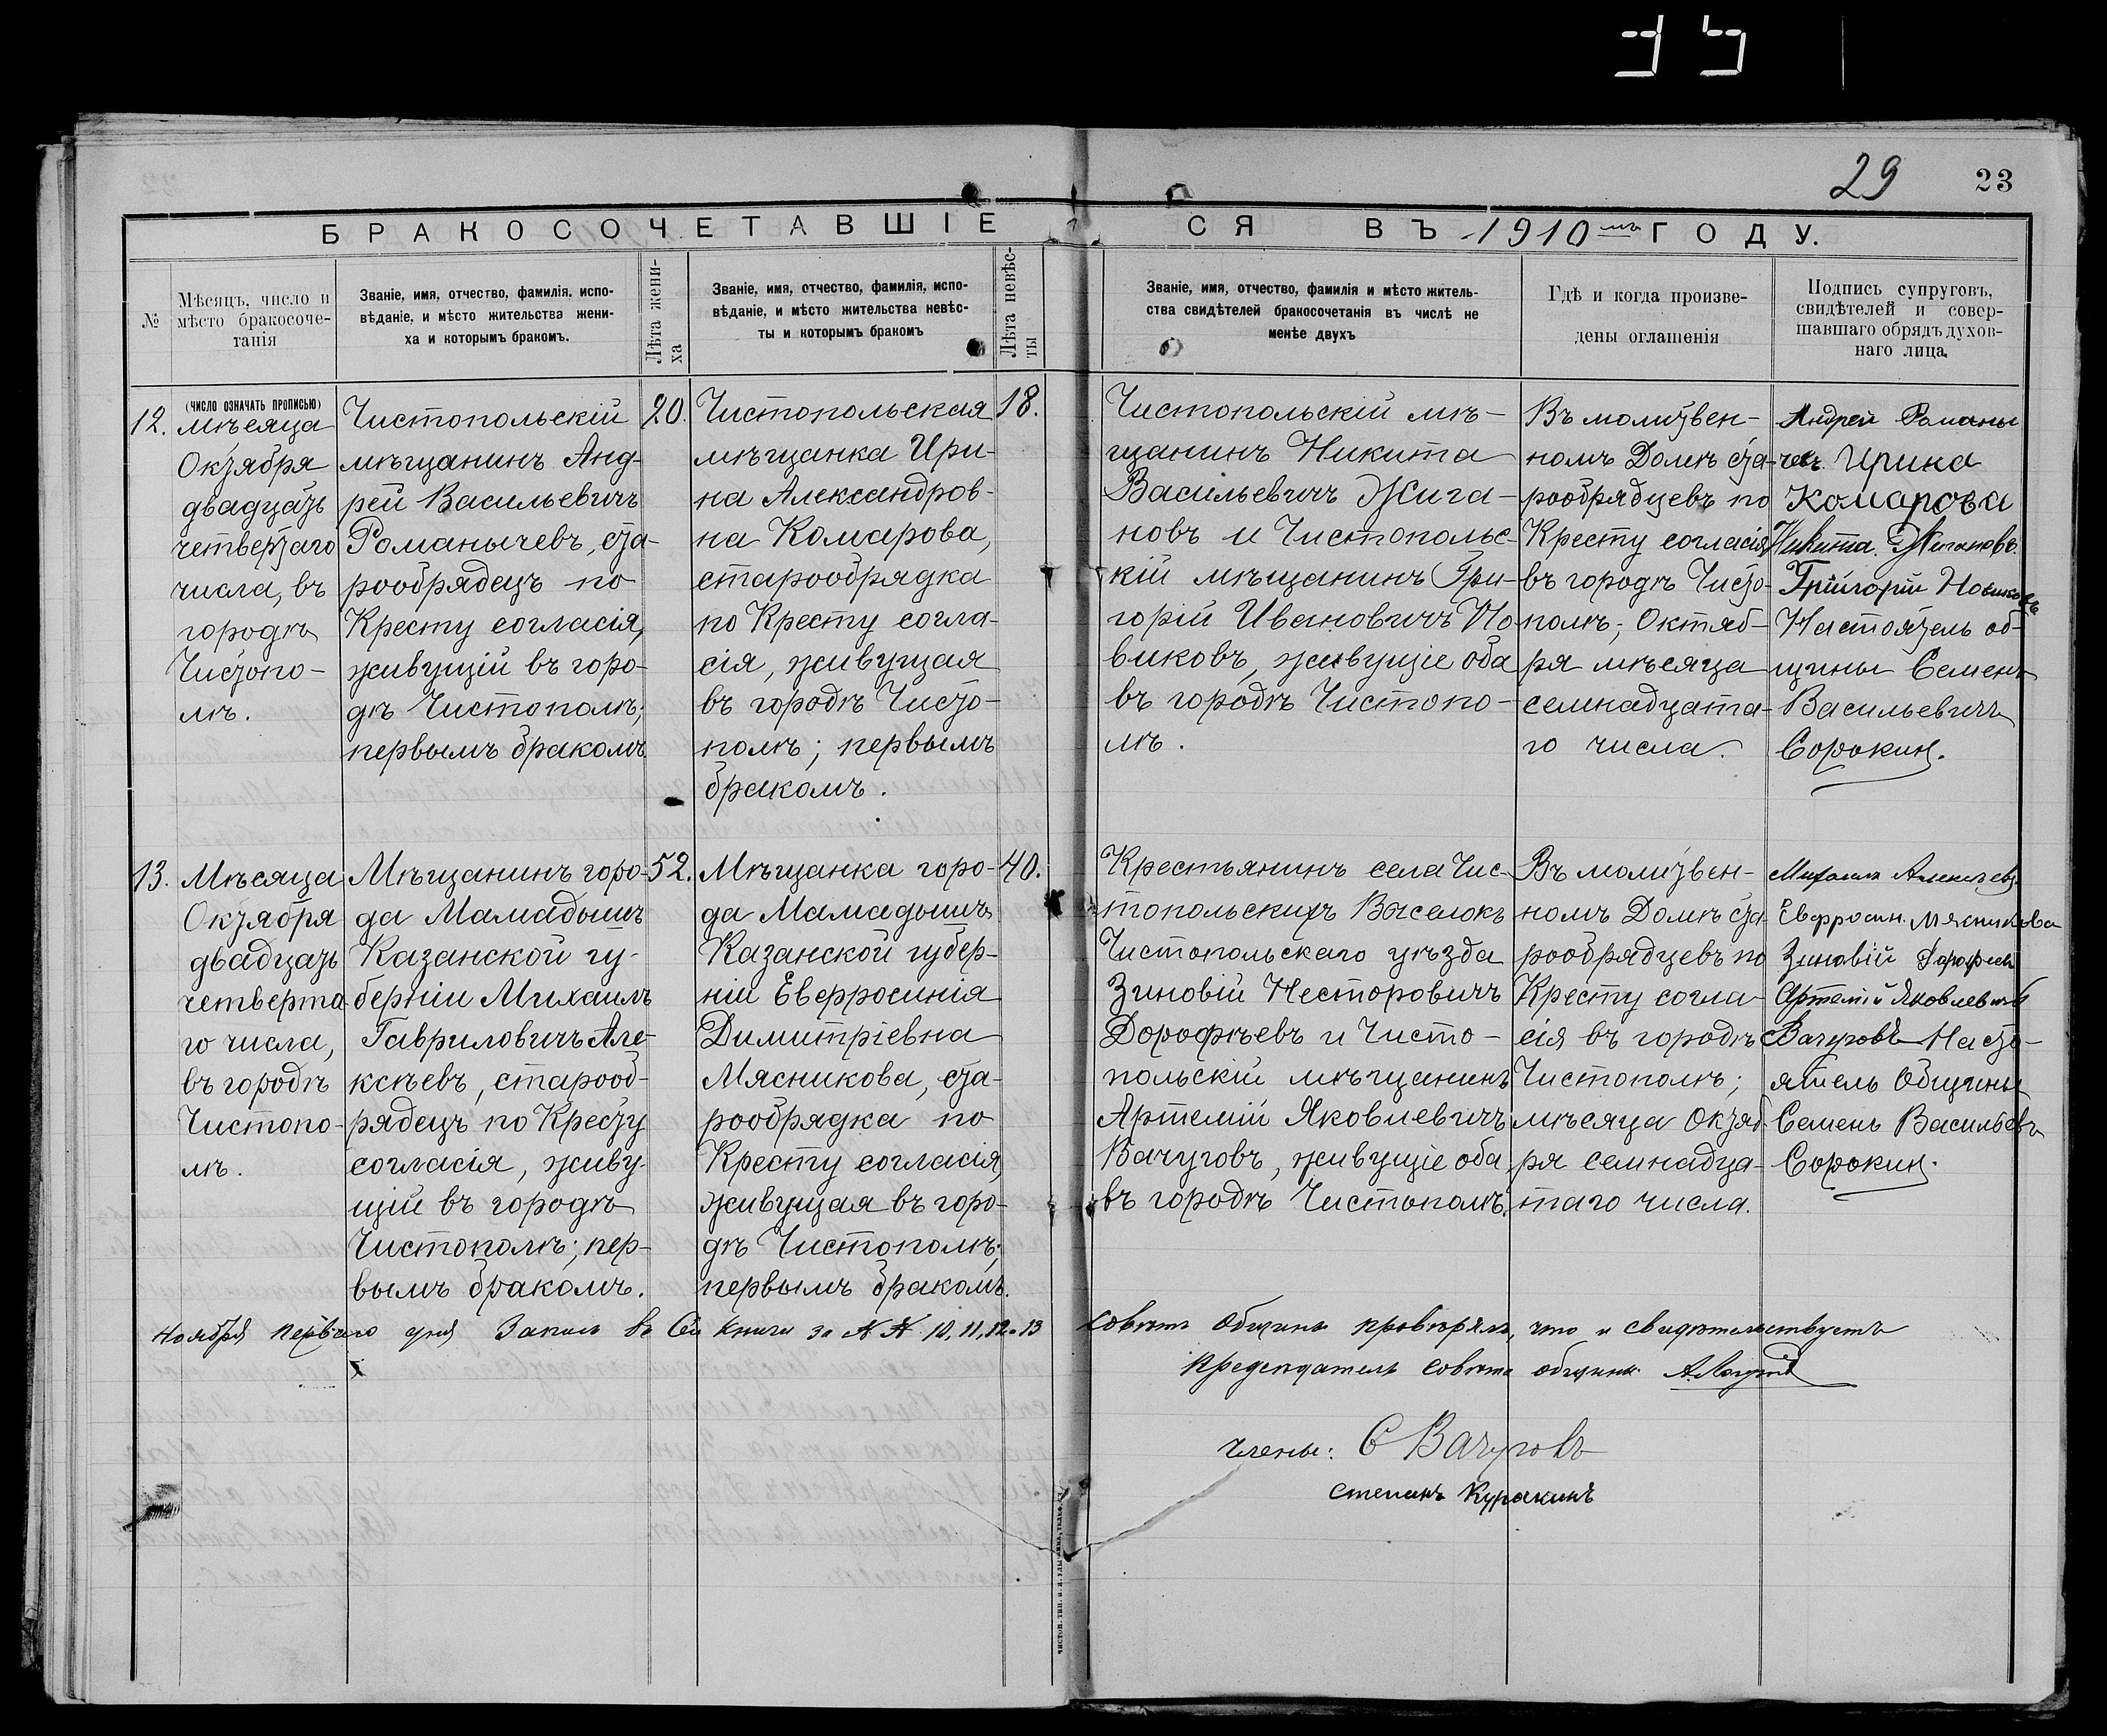 29 23
БРАКОСОЧЕТАВШІЕСЯ ВЪ 1910мъ ГОДУ.
№
Мѣсяцъ, число и
мѣсто бракосоче-
танія
Званіе, имя, отчество, фамилія, испо-
вѣданіе, и мѣсто жительства жени-
ха и которымъ бракомъ.
Лѣта жени-
ха
Званіе, имя, отчество, фамилія, испо-
вѣданіе, и мѣсто жительства невѣс-
ты и которымъ бракомъ
Лѣта невѣс-
ты
Званіе, имя, отчество, фамилія и мѣсто житель-
ства свидѣтелей бракосочетанія въ числѣ не
менѣе двухъ
Гдѣ и когда произве-
дены оглашенія
Подпись супруговъ,
свидѣтелей и совер-
шавшаго обрядъ духов-
наго лица.
(число означать прописью)
12.
мѣсяца
Октября
двадцать
четвертаго
числа, въ
городѣ
Чистопо-
лѣ.
Чистопольскій
мѣщанинъ Анд-
рей Васильевичъ
Романычевъ, ста-
рообрядецъ по
Кресту согласія,
живущій въ горо-
дѣ Чистополѣ;
первымъ бракомъ
20.
Чистопольская
мѣщанка Ири-
на Александров-
на Комарова,
старообрядка
по Кресту согла-
сія, живущая
въ городѣ Чисто-
полѣ; первымъ
бракомъ.
18.
Чистопольскій мѣ-
щанинъ Никита
Васильевичъ Жига-
новъ и Чистопольс-
кій мѣщанинъ Гри-
горій Ивановичъ Но-
виковъ, живущіе оба
въ городѣ Чистопо-
лѣ.
Въ молитвен-
номъ Домѣ ста-
рообрядцевъ по
Кресту согласія
въ городѣ Чисто-
полѣ; Октяб-
ря мѣсяца
семнадцата-
го числа.
Андрей Романы
чевъ. Ирина
Комарова
Никита. Жигановъ.
Григорій Новиковъ
Настоятель об-
щины Семенъ
Васильевичъ
Сорокин.
13.
Мѣсяца
Октября
двадцать
четверта
го числа,
въ городѣ
Чистопо-
лѣ.
Мѣщанинъ горо-
да Мамадышъ
Казанской гу-
берніи Михаилъ
Гавриловичъ Але-
ксѣевъ, старооб-
рядецъ по Кресту
согласія, живу-
щій въ городѣ
Чистополѣ; пер-
вымъ бракомъ.
52.
Мѣщанка горо-
да Мамадышъ
Казанской губер-
ніи Евфросинія
Димитріевна
Мясникова, ста-
рообрядка по
Кресту согласія,
живущая въ горо-
дѣ Чистополѣ;
первымъ бракомъ.
40.
Крестьянинъ села Чис-
топольскихъ Выселокъ
Чистопольскаго уѣзда
Зиновій Несторовичъ
Дорофѣевъ и Чисто-
польскій мѣщанинъ
Артемій Яковлевичъ
Вачуговъ, живущіе оба
въ городѣ Чистополѣ.
Въ молитвен-
номъ Домѣ ста-
рообрядцевъ по
Кресту согла-
сія въ городѣ
Чистополѣ;
мѣсяца Октяб-
ря семнадца-
таго числа.
Михаилъ Алексѣевъ
Евфросин. Мясникова
Зиновій Дорофѣевъ
Артемій Яковлевичъ
Вачуговъ Насто-
ятель Общины
Семенъ Васильевъ
Сорокин.
Ноября перваго дня Запись въ Сей Книги за №№ 10, 11, 12 и 13 Совѣтъ Общины провѣрялъ, что и свидѣтельствуетъ
Предсѣдатель Совѣта общины
Члены: С Вачуговъ
Степанъ Куракинъ